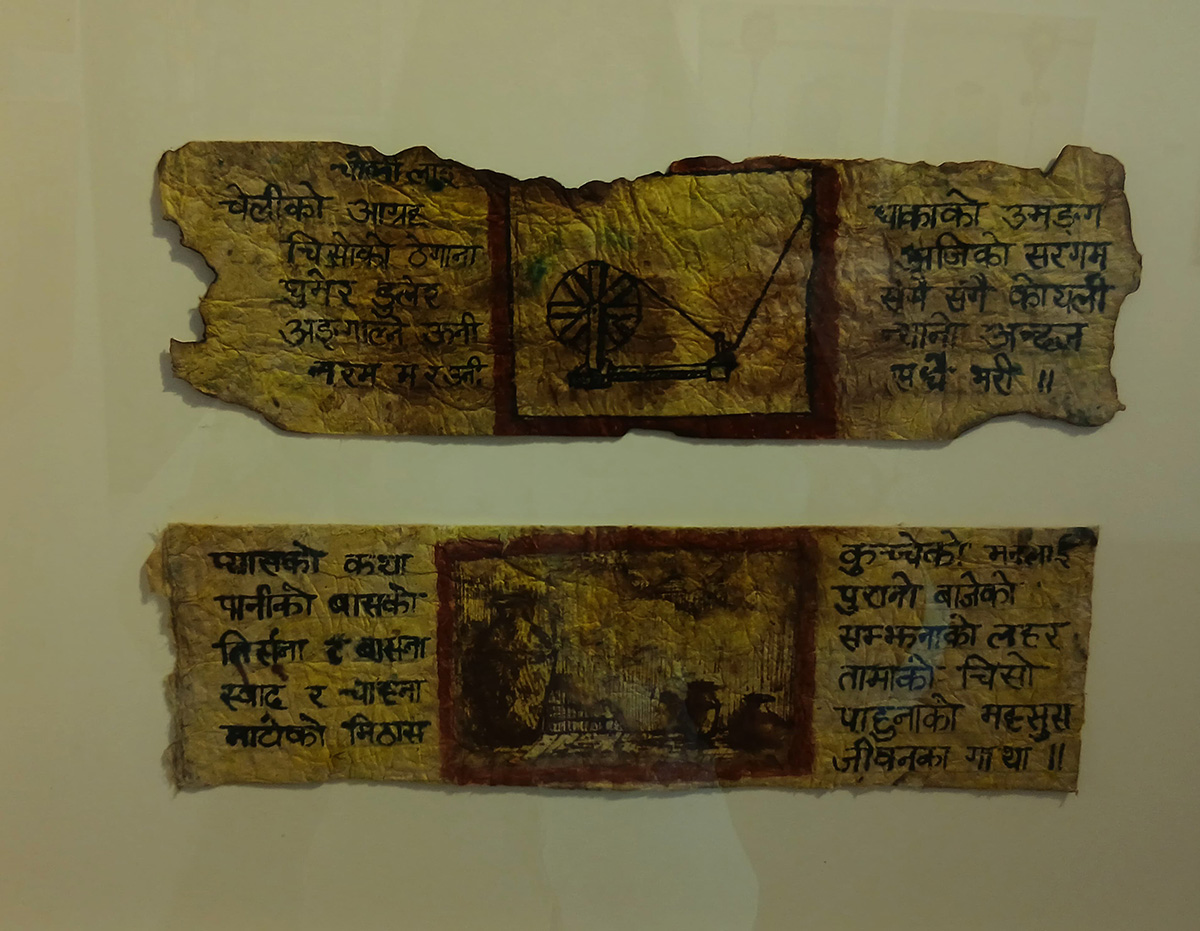 चोलो लाइ
चेलीको आग्रह
चिसोको ठेगाना
घुमेर डुलेर
अङ्गाल्ने ऊनी
नरम म रअी
धाकाको उमङ्ग
को सरगम
संगै संगै कोयली
न्यानो अन्दाज
सधैं भरी ॥
प्यासको कथा
पानीको बासको
तिर्सना र बासना
स्वाद र चाहना
माटोको मिठास
कुच्चेको मनलाई
पुरानो बाजेको
सम्झनाको लहर
तामाको चिसो
पाहुनाको महसुस
जीवनका गाथा ॥